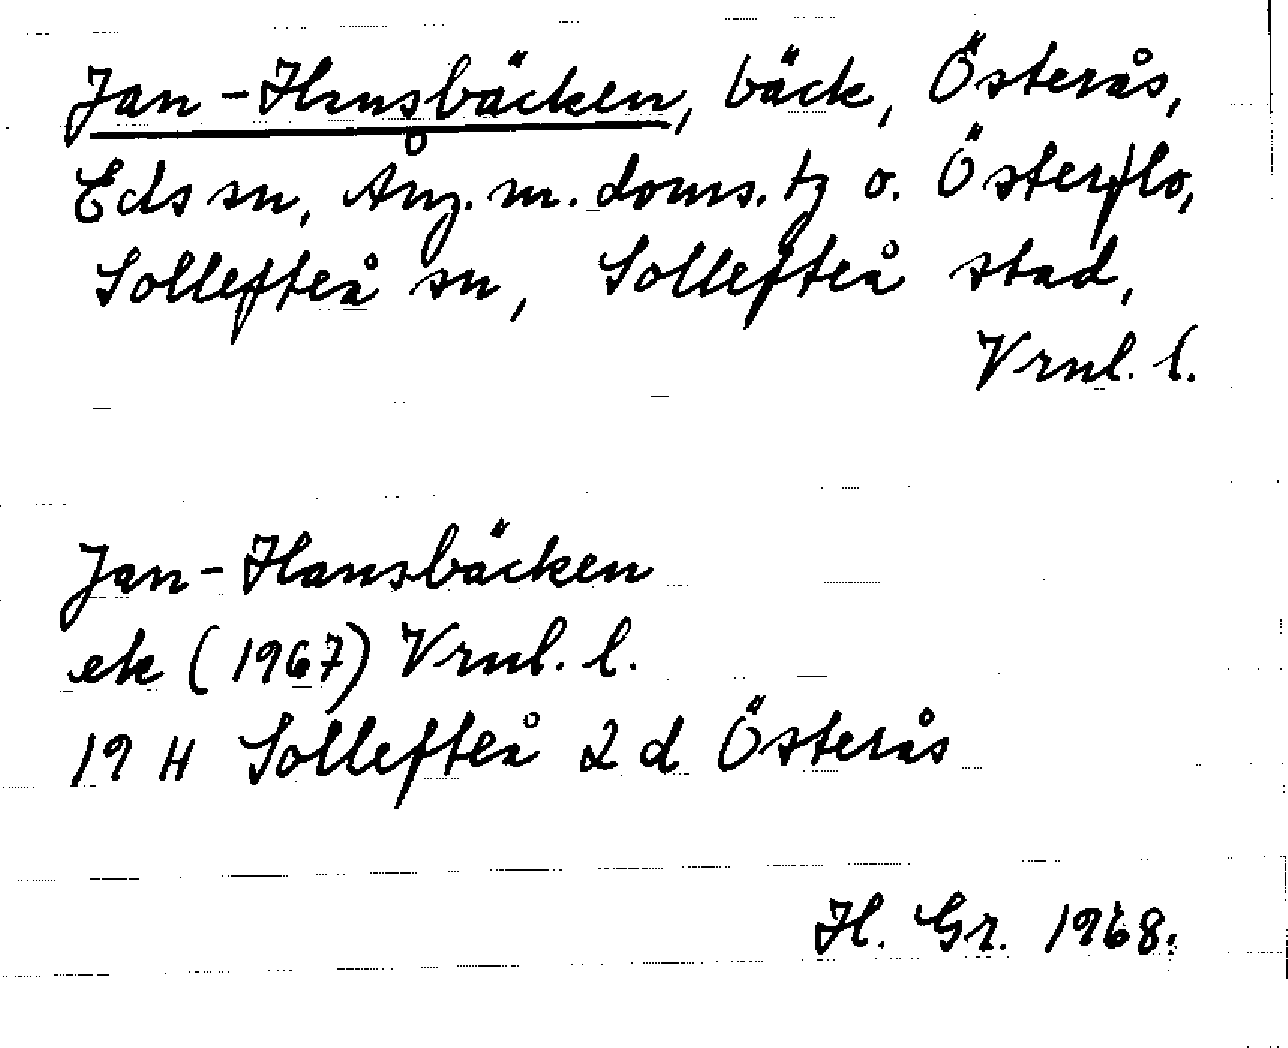 Jan-Hansbäcken, bäck, Österås,
Eds sn, Ång. m. doms. tg o. Österflo,
Sollefteå sn, Sollefteå stad,
Vrnl. l.
Jan-Hansbäcken
ek (1967) Vrnl. l.
19 H Sollefteå 2 d Österås
H. Gr. 1968.